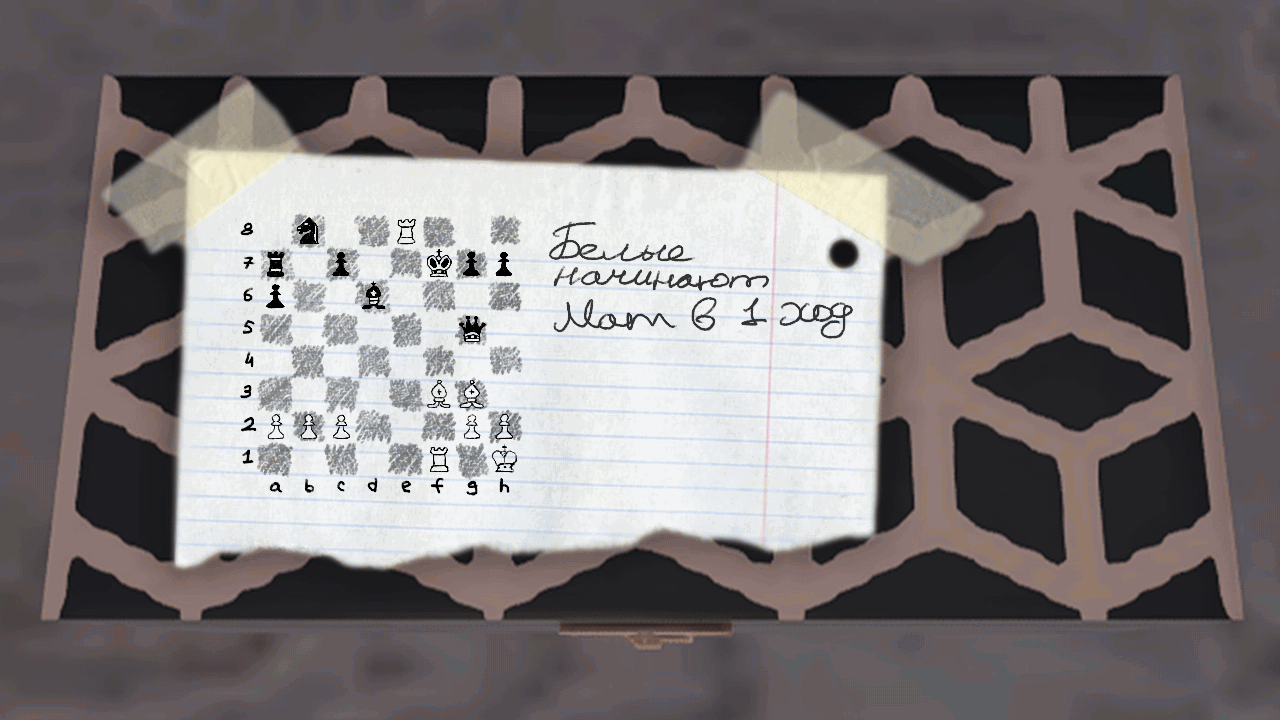 8
7
6
5
4
3
2
1
a b c d e f g h
Белые
начинают
Мат в 1 ход